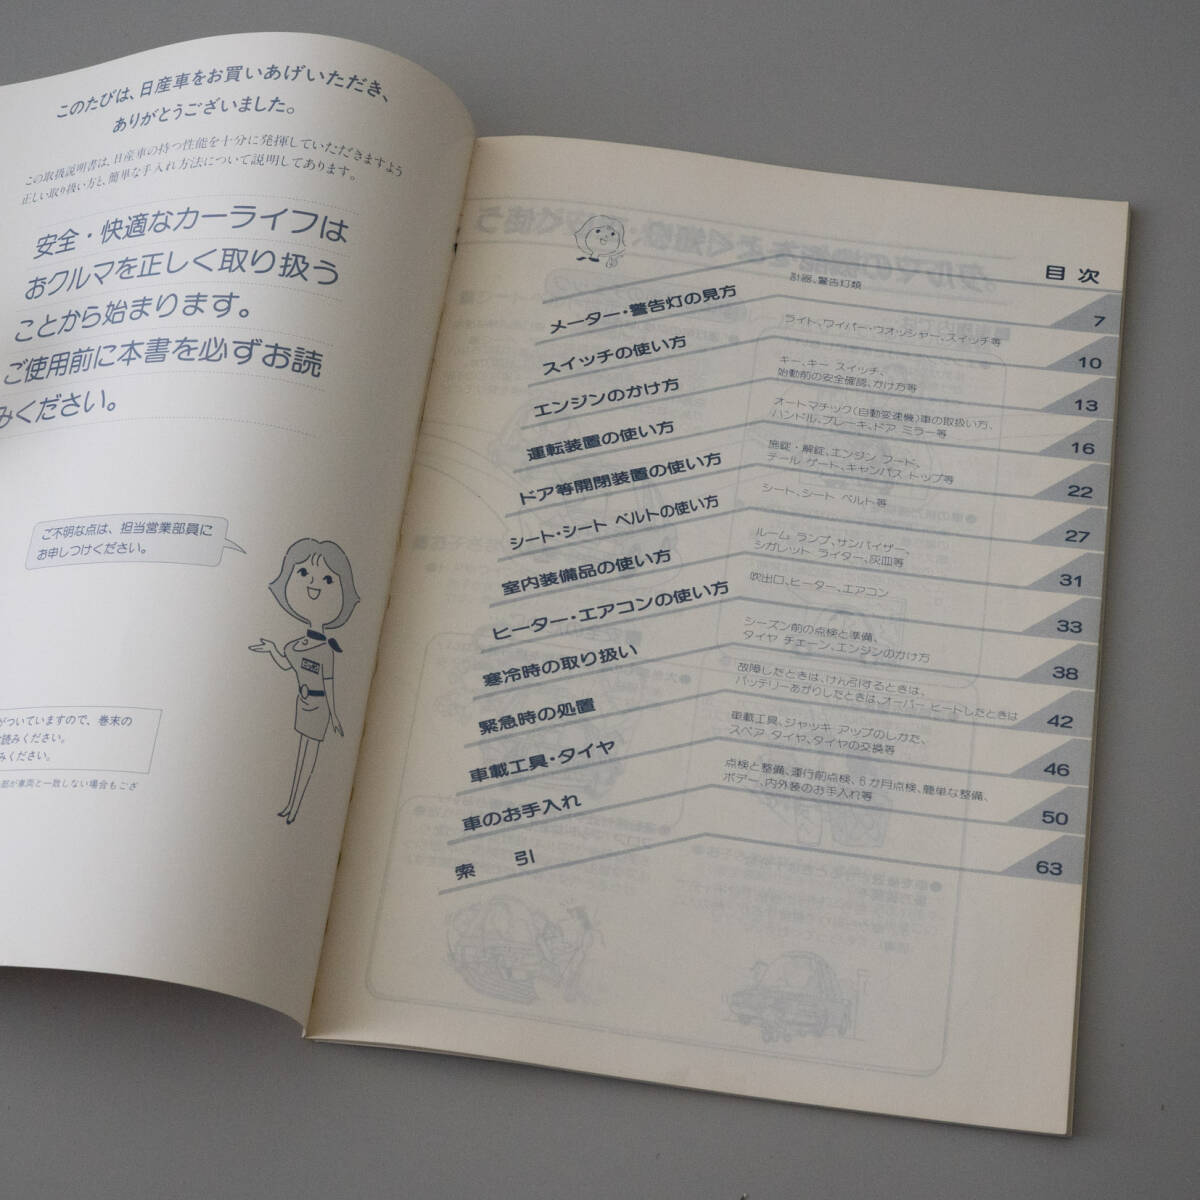 このたびは、日産車をお買いあげいただき、
ありがとうございました。
この取扱説明書は、日産車の持つ性能を十分に発揮していただきますよう
正しい取り扱い方と、簡単な手入れ方法について説明してあります。
安全・快適なカーライフは
おクルマを正しく取り扱う
ことから始まります。
ご使用前に本書を必ずお読
みください。
ご不明な点は、担当営業部員に
お申しつけください。
がついていますので、巻末の
読みください。
みください。
部が車両と一致しない場合もござ
目次
メーター・警告灯の見方
計器、警告灯類
7
スイッチの使い方
ライト、ワイパー・ウオッシャー、スイッチ等
10
エンジンのかけ方
キー、キー スイッチ、
始動前の安全確認、かけ方等
13
運転装置の使い方
オートマチック(自動変速機)車の取扱い方、
ハンドル、ブレーキ、ドア ミラー等
16
ドア等開閉装置の使い方
施錠・解錠、エンジン フード、
テール ゲート、キャンバス トップ等
22
シート・シート ベルトの使い方
シート、シート ベルト等
27
室内装備品の使い方
ルーム ランプ、サンバイザー、
シガレット ライター、灰皿等
31
ヒーター・エアコンの使い方
吹出口、ヒーター、エアコン
33
寒冷時の取り扱い
シーズン前の点検と準備、
タイヤ チェーン、エンジンのかけ方
38
緊急時の処置
故障したときは、けん引するときは、
バッテリーあがりしたときは、オーバー ヒートしたときは
42
車載工具・タイヤ
車載工具、ジャッキ アップのしかた、
スペア タイヤ、タイヤの交換等
46
車のお手入れ
点検と整備、運行前点検、6か月点検、簡単な整備、
ボデー、内外装のお手入れ等
50
索 引
63